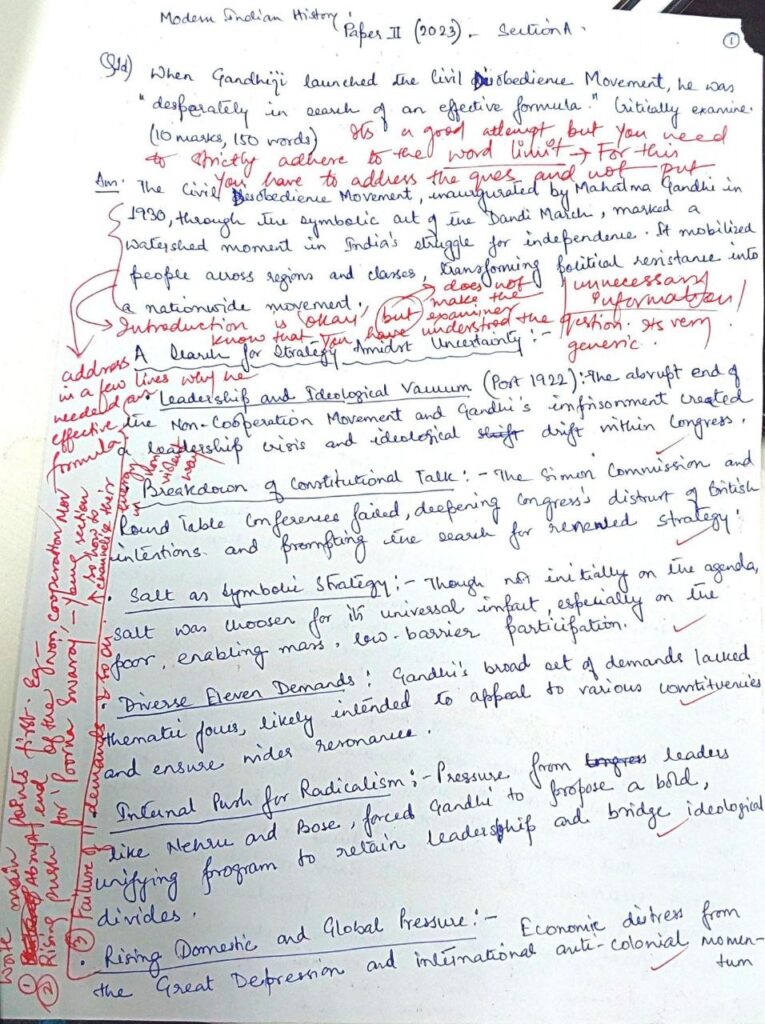 Modern Indian History
Paper II (2023) - Section A.
①
Q1d) When Gandhiji launched the Civil Disobedience Movement, he was
"desparately in search of an effective formula." Critically examine.
(10 marks, 150 words)
Its a good attempt, but you need
to strictly adhere to the word limit → For this
you have to address the ques and not put
unnecessary
information/
Ans: The Civil Disobedience Movement, inaugurated by Mahatma Gandhi in
1930, through the symbolic act of the Dandi March, marked a
watershed moment in India's struggle for independence. It mobilized
people across regions and classes, transforming political resistance into
a nationwide movement.
→ Introduction is okay, but does not
make the
examiner
know that you have understood the question. Its very
generic.
A Search for Strategy Amidst Uncertainty :-
address
in a few lines why he
needed an
effective
formula
Leadership and Ideological Vacuum (Post 1922): The abrupt end of
the Non-Cooperation Movement and Gandhi's imprisonment created
a leadership crisis and ideological shift drift within Congress.
Breakdown of Constitutional Talk :- The Simon Commission and
Round Table Conferences failed, deepening Congress's distrust of British
intentions and prompting the search for renewed strategy.
• Salt as Symbolic Strategy :- Though not initially on the agenda,
salt was choosen for its universal impact, especially on the
poor, enabling mass, low-barrier participation.
• Diverse Eleven Demands : Gandhi's broad set of demands lacked
thematic focus, likely intended to appeal to various constituencies
and ensure wider resonance.
Internal Push for Radicalism :- Pressure from Congress leaders
like Nehru and Bose, forced Gandhi to propose a bold,
unifying program to retain leadership and bridge ideological
divides.
• Rising Domestic and Global Pressure :- Economic distress from
the Great Depression and international anti-colonial momen-
tum
Write main points first. Eg-
① Abrupt end of the Non cooperation Mov
② Rising push for 'Poorna Swaraj' - Young section
so how to
channelise their
energy
in
non
violent
way
③ Failure of 11 demands & so on.